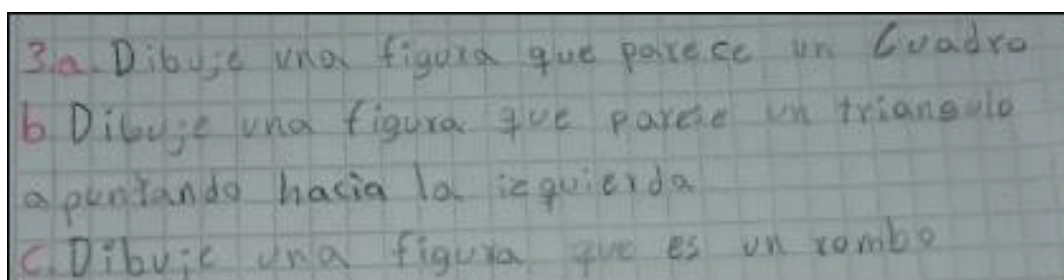 3.a. Dibuje una figura que parece un Cuadro
b Dibuje una figura que parece un triangulo
apuntando hacia la izquierda
c. Dibuje una figura que es un rombo